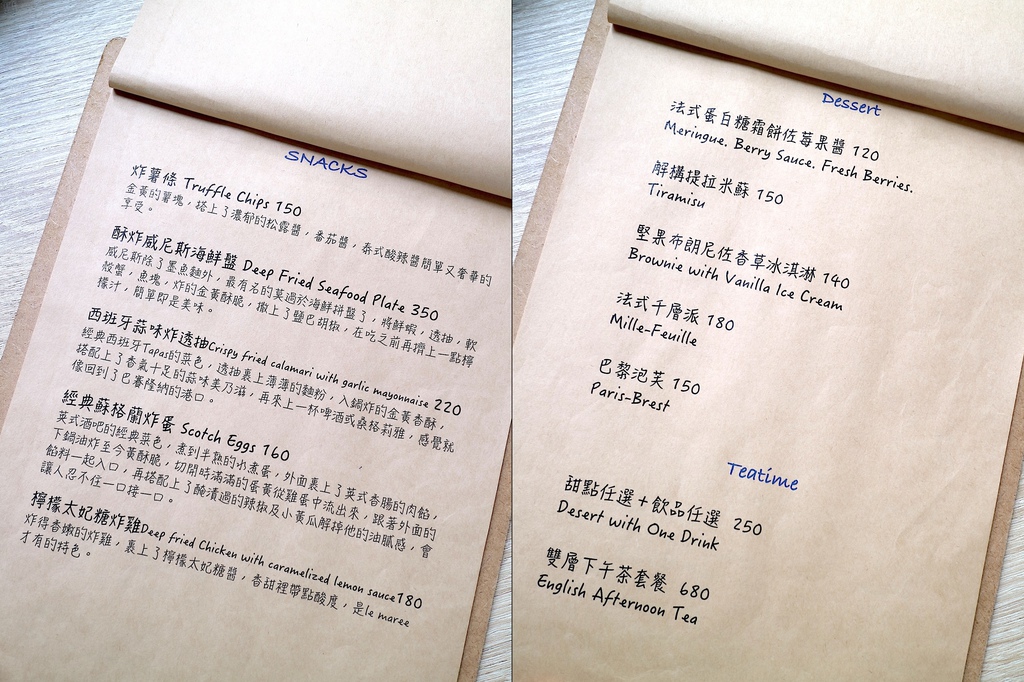 SNACKS
炸薯條 Truffle Chips 150
金黃的薯塊，搭上了濃郁的松露醬，番茄醬，泰式酸辣醬簡單又奢華的
享受。
酥炸威尼斯海鮮盤 Deep Fried Seafood Plate 350
威尼斯除了墨魚麵外，最有名的莫過於海鮮拼盤了，將鮮蝦，透抽，軟
殼蟹，魚塊，炸的金黃酥脆，撒上了鹽巴胡椒，在吃之前再擠上一點檸
檬汁，簡單即是美味。
西班牙蒜味炸透抽Crispy fried calamari with garlic mayonnaise 220
經典西班牙Tapas的菜色，透抽裹上薄薄的麵粉，入鍋炸的金黃香酥，
搭配上了香氣十足的蒜味美乃滋，再來上一杯啤酒或桑格莉雅，感覺就
像回到了巴賽隆納的港口。
經典蘇格蘭炸蛋 Scotch Eggs 160
英式酒吧的經典菜色，煮到半熟的水煮蛋，外面裹上了英式香腸的肉餡，
下鍋油炸至今黃酥脆，切開時滿滿的蛋黃從雞蛋中流出來，跟著外面的
餡料一起入口，再搭配上了醃漬過的辣椒及小黃瓜解掉他的油膩感，會
讓人忍不住一口接一口。
檸檬太妃糖炸雞Deep fried Chicken with caramelized lemon sauce180
炸得香嫩的炸雞，裹上了檸檬太妃糖醬，香甜裡帶點酸度，是le maree
才有的特色。
Dessert
法式蛋白糖霜餅佐莓果醬 120
Meringue. Berry Sauce. Fresh Berries.
解構提拉米蘇 150
Tiramisu
堅果布朗尼佐香草冰淇淋 140
Brownie with Vanilla Ice Cream
法式千層派 180
Mille-Feuille
巴黎泡芙 150
Paris-Brest
Teatime
甜點任選＋飲品任選 250
Desert with One Drink
雙層下午茶套餐 680
English Afternoon Tea